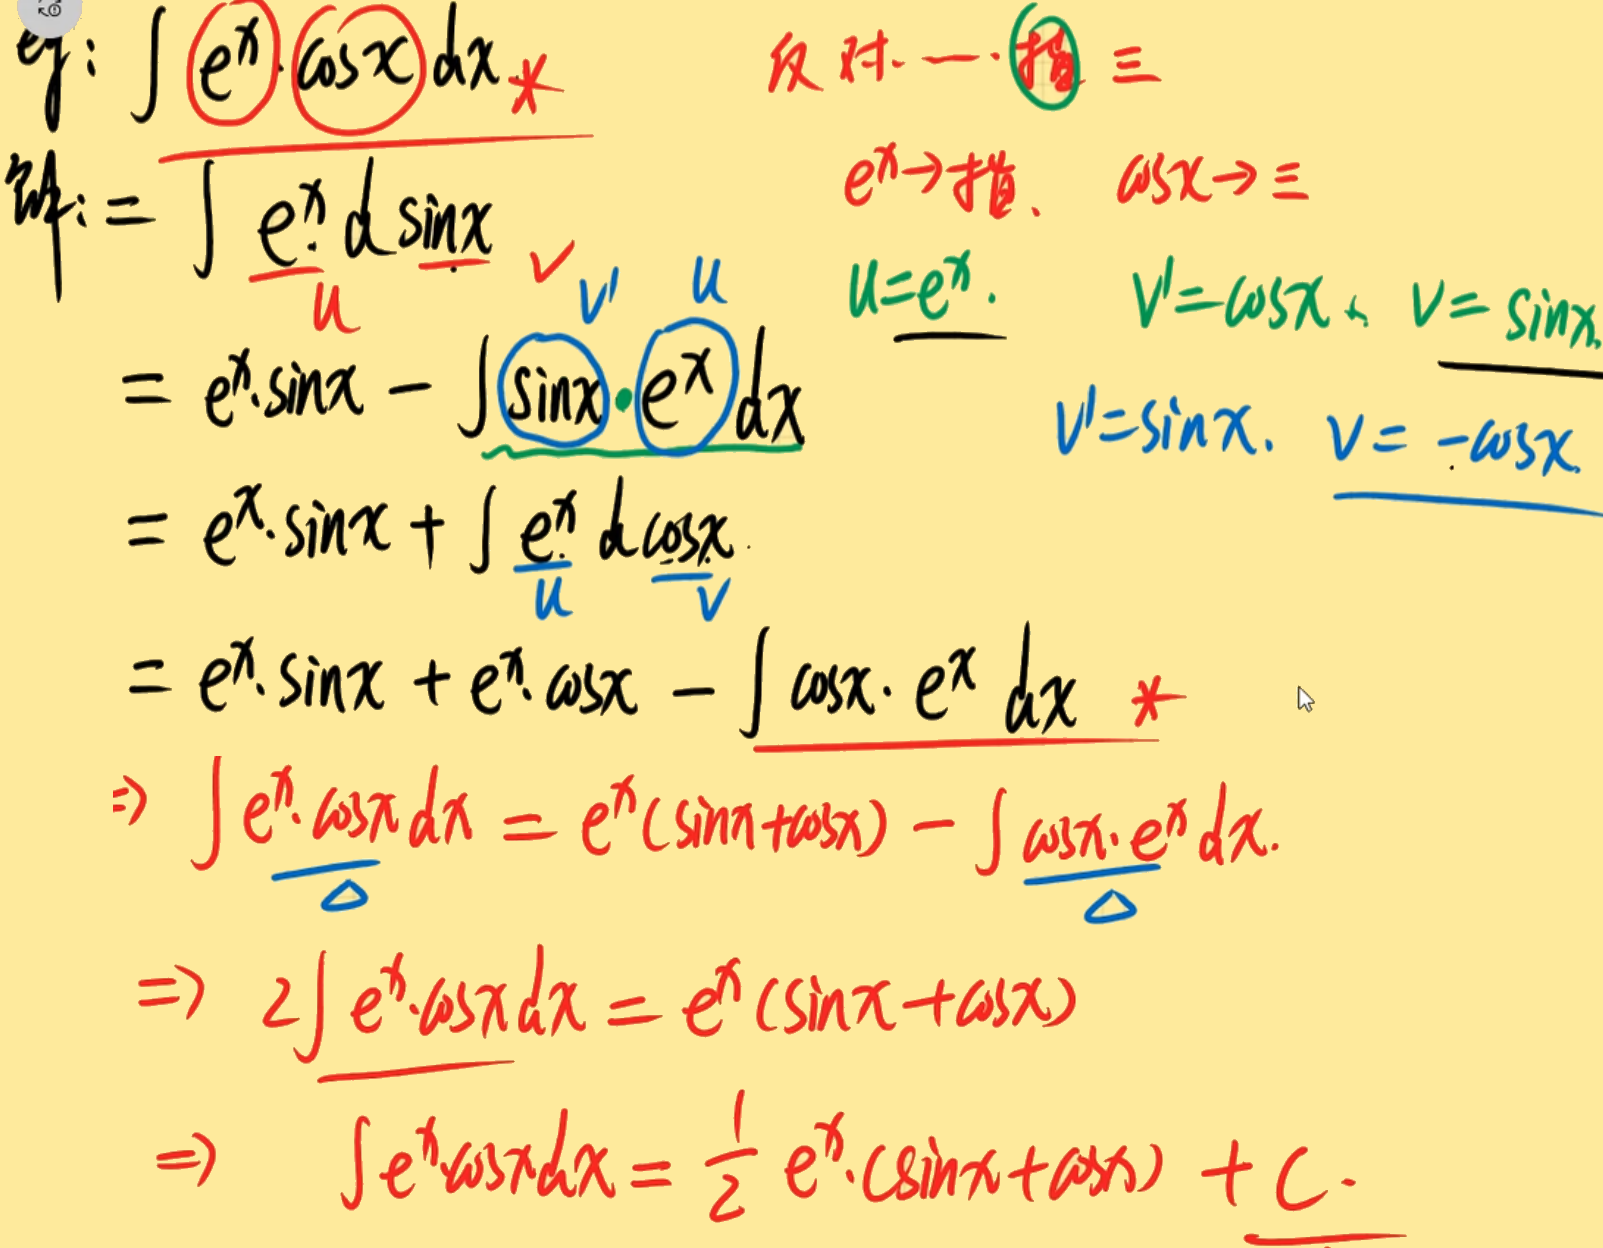 eg: ∫ eˣ · cosx dx *
反 对 一 · 指 三
eˣ → 指. cosx → 三
解: = ∫ eˣ d sinx
u v
u = eˣ. v' = cosx. v = sinx.
v' u
= eˣ · sinx − ∫ sinx · eˣ dx
v' = sinx. v = −cosx.
= eˣ · sinx + ∫ eˣ d cosx
u v
= eˣ · sinx + eˣ · cosx − ∫ cosx · eˣ dx *
⇒ ∫ eˣ · cosx dx = eˣ (sinx + cosx) − ∫ cosx · eˣ dx.
△ △
⇒ 2∫ eˣ · cosx dx = eˣ (sinx + cosx)
⇒ ∫ eˣ · cosx dx = 1/2 eˣ · (sinx + cosx) + C.